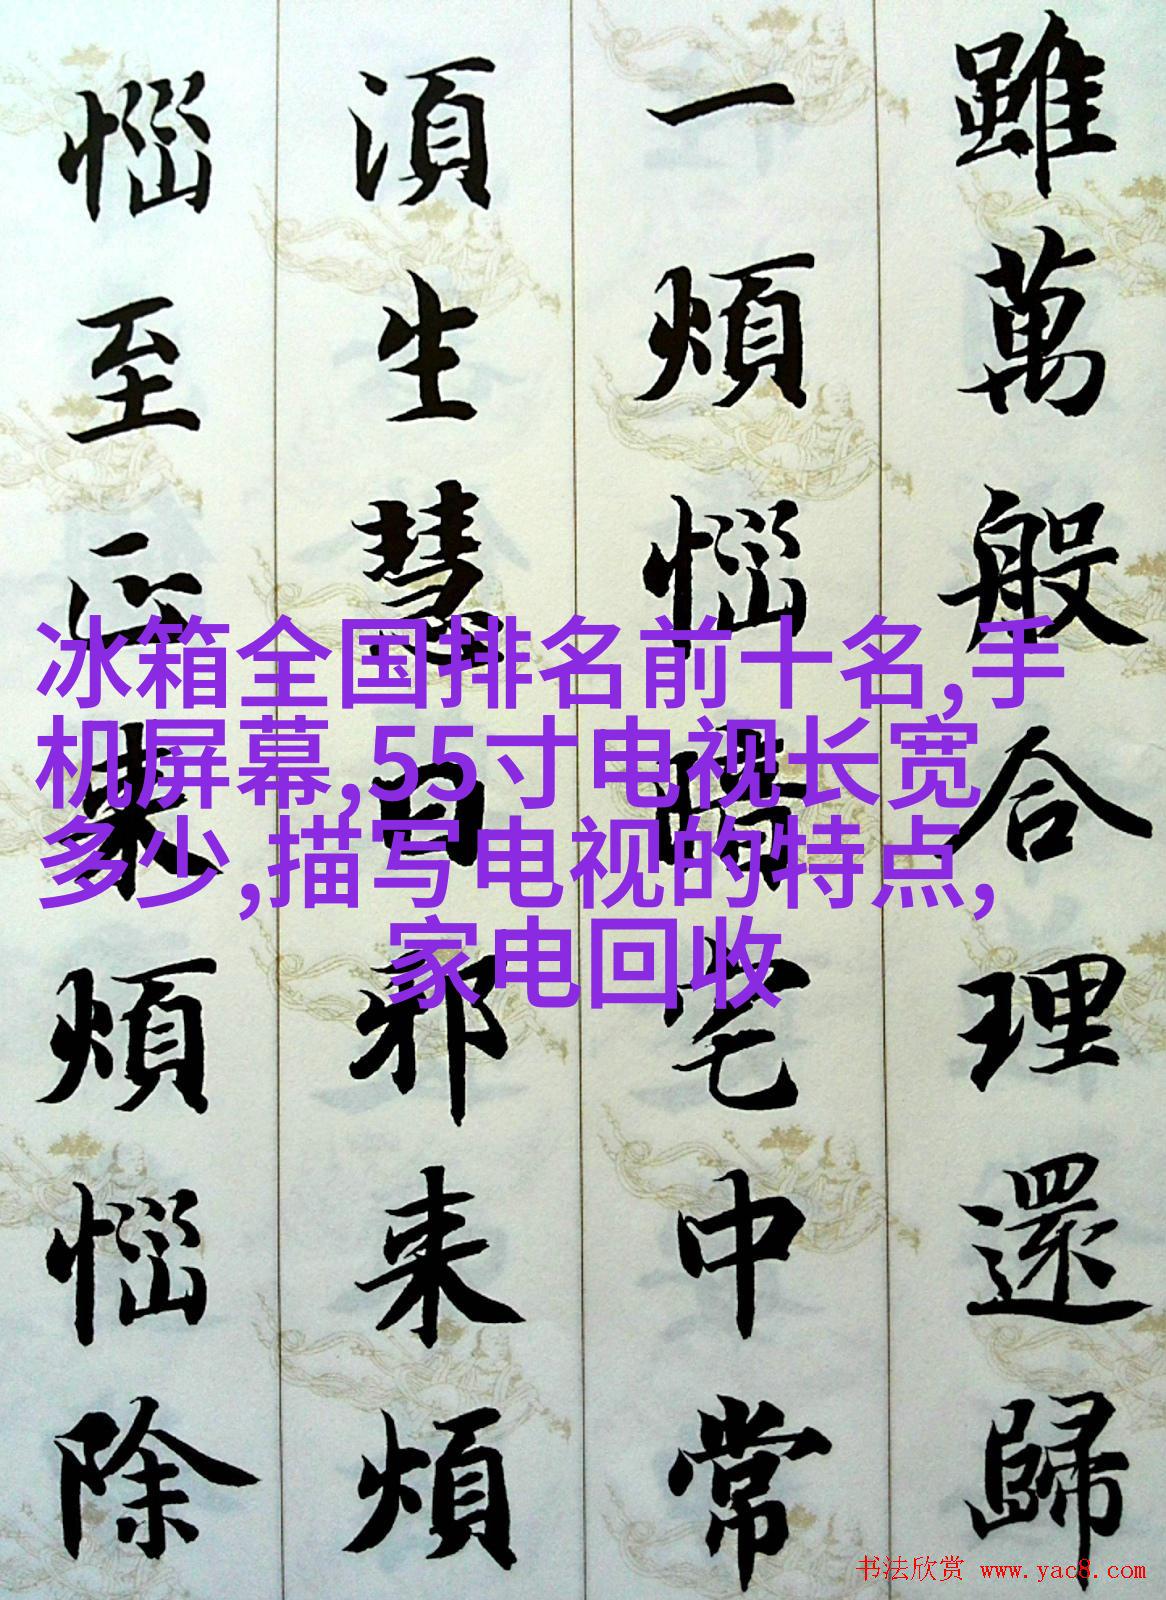 雖萬般合理還歸
一煩惱暗宅中常
湏生慧日邪来煩
惱至正来煩惱除
冰箱全国排名前十名,手
机屏幕,55寸电视长宽
多少,描写电视的特点,
家电回收
书法欣赏 www.yac8.com